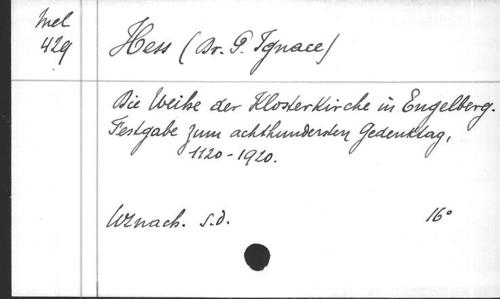 Mel
429
Hess (Dr. P. Ignace)
Die Weihe der Klosterkirche in Engelberg.
Festgabe zum achthundersten Gedenktag,
1120-1920.
Uznach. s.d. 16°